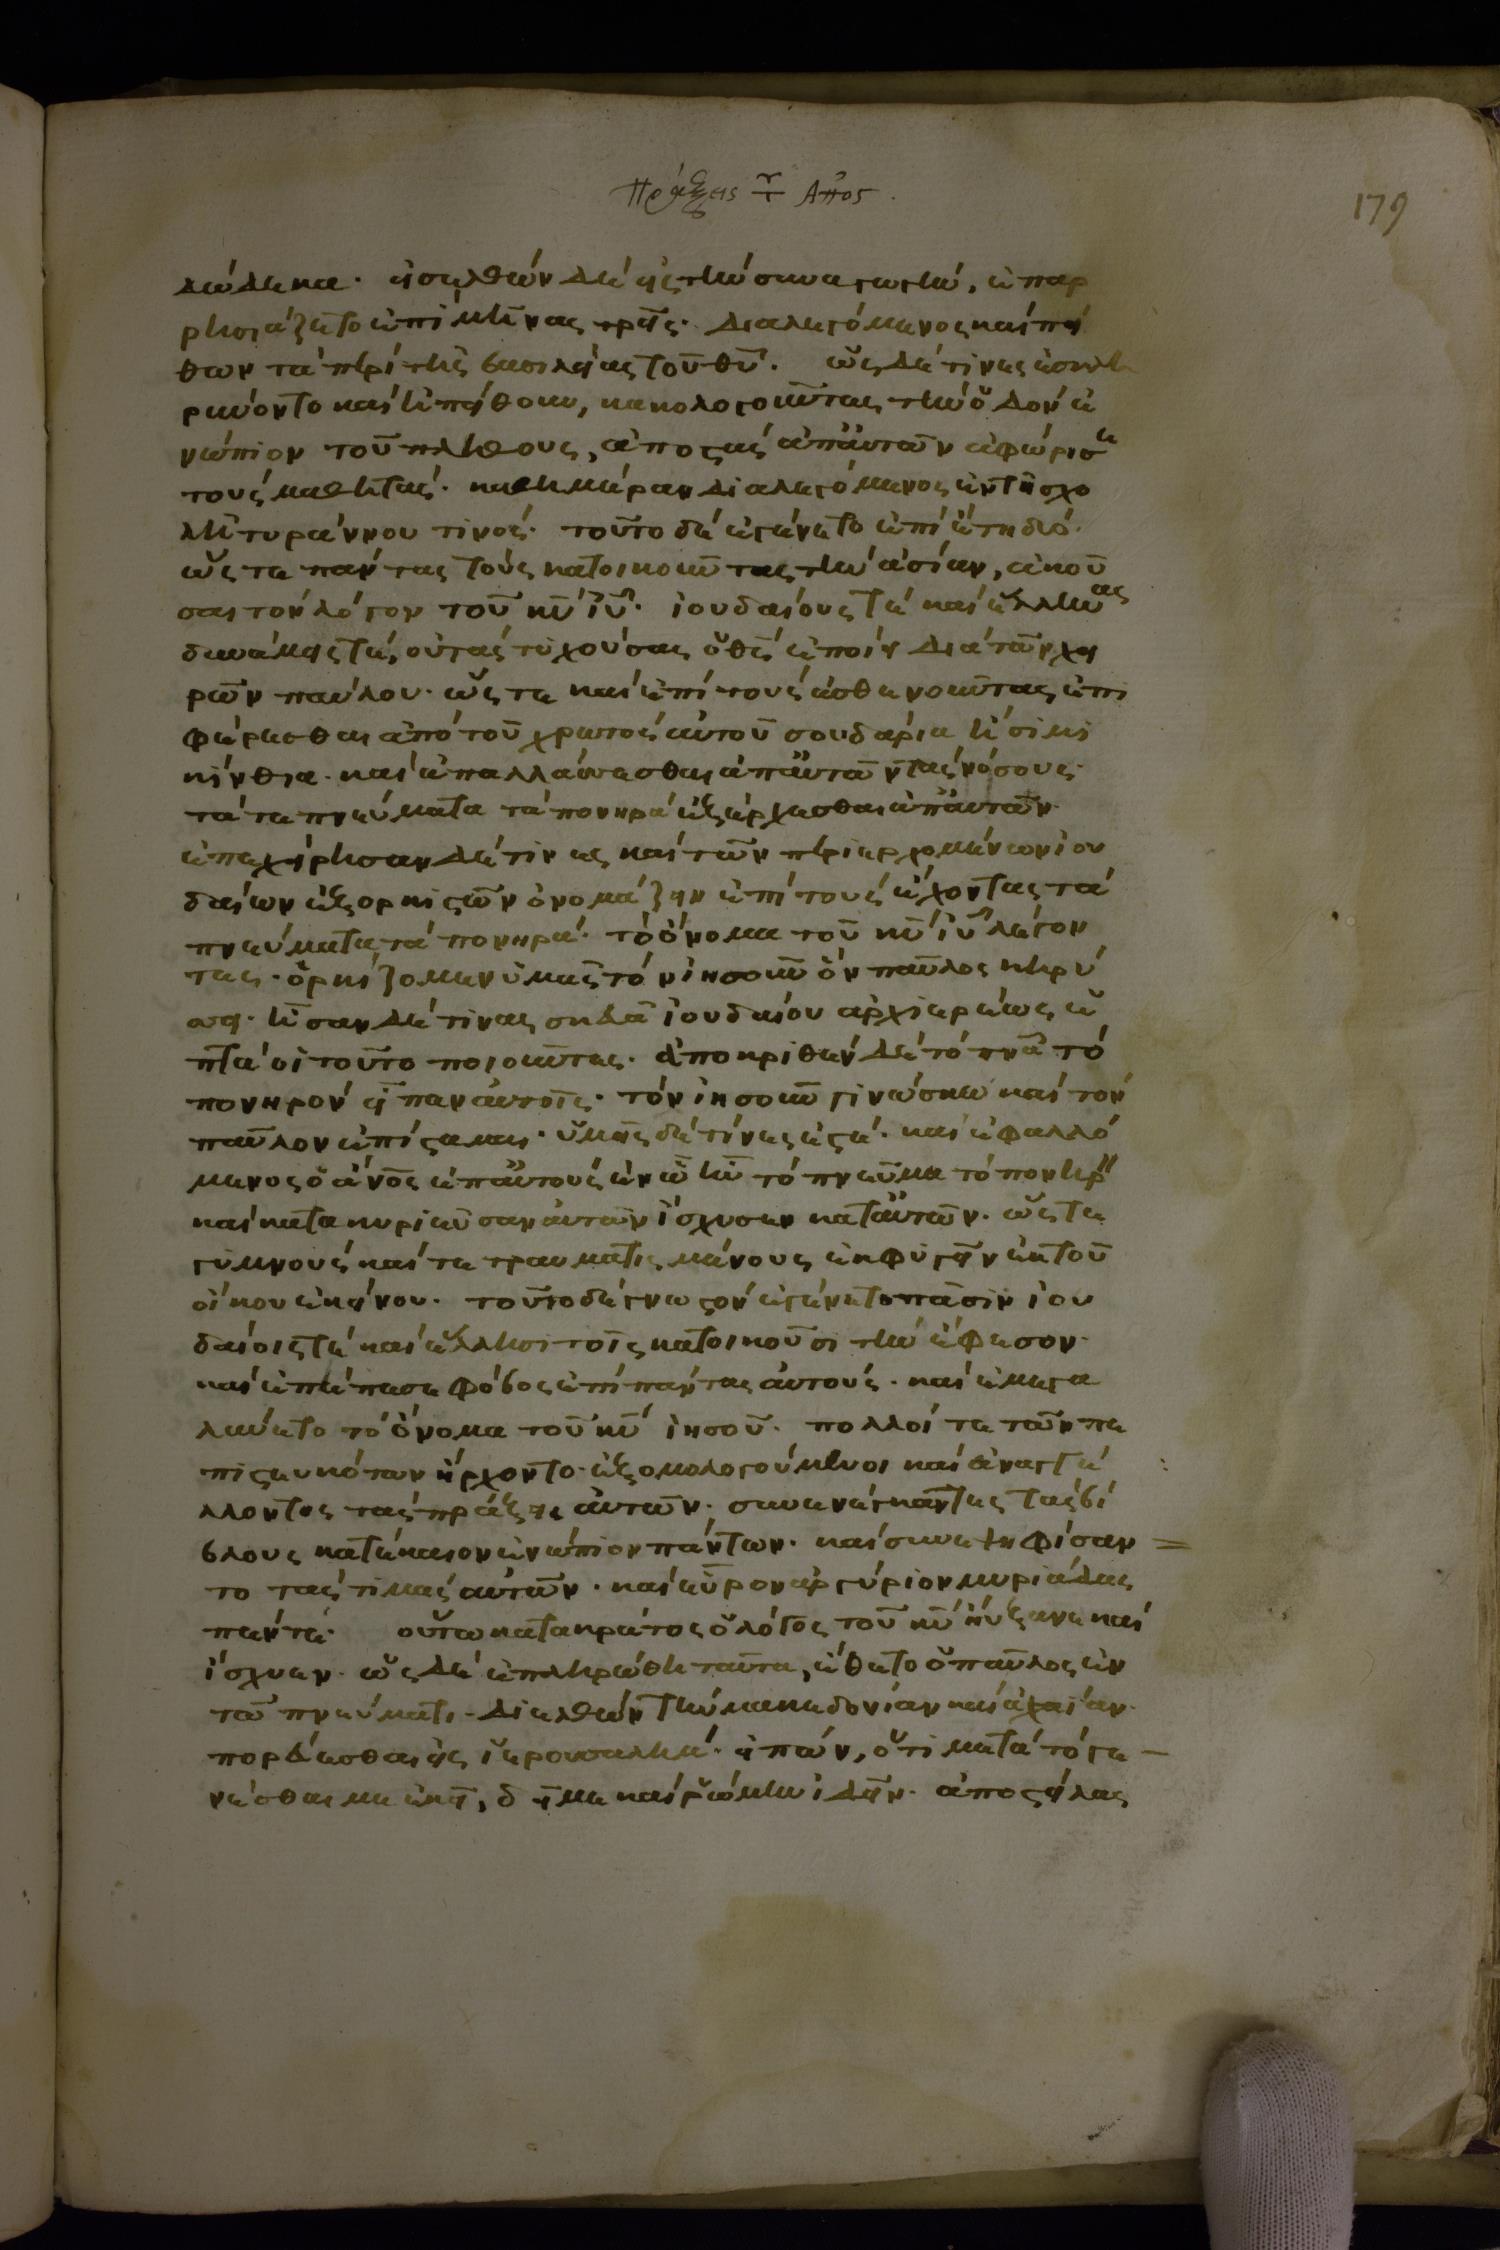 Πράξεις τ Αποσ.
179
δώδεκα. εἰσελθὼν δὲ εἰς τὴν συναγωγὴν, ἐπαρ
ρησιάζετο ἐπὶ μῆνας τρεῖς. διαλεγόμενος καὶ πεί
θων τὰ περὶ τῆς βασιλείας τοῦ θυ. ὡς δέ τινες ἐσκλη
ρύνοντο καὶ ἠπείθουν, κακολογοῦντες τὴν ὁδὸν ἐ
νώπιον τοῦ πλήθους, ἀποστὰς ἀπ' αὐτῶν ἀφώρισε
τοὺς μαθητάς. καθημέραν διαλεγόμενος ἐν τῇ σχο
λῇ τυράννου τινός. τοῦτο δὲ ἐγένετο ἐπὶ ἔτη δύο.
ὥς τε πάντας τοὺς κατοικοῦντας τὴν ἀσίαν, ἀκοῦ
σαι τὸν λόγον τοῦ κυ ιυ. ἰουδαίους τὲ καὶ ἕλληνας
δυνάμεις τὲ, οὐ τὰς τυχούσας ὁ θς ἐποίει διὰ τῶν χει
ρῶν παύλου. ὥς τε καὶ ἐπὶ τοὺς ἀσθενοῦντας ἐπι
φέρεσθαι ἀπὸ τοῦ χρωτὸς αὐτοῦ σουδάρια ἢ σιμι
κίνθια. καὶ ἀπαλλάσσεσθαι ἀπ' αὐτῶν τὰς νόσους.
τά τε πνεύματα τὰ πονηρὰ ἐξέρχεσθαι ἀπ' αὐτῶν.
ἐπεχείρησαν δέ τινες καὶ τῶν περιερχομένων ἰου
δαίων ἐξορκιστῶν ὀνομάζειν ἐπὶ τοὺς ἔχοντας τὰ
πνεύματα τὰ πονηρά. τὸ ὄνομα τοῦ κυ ιυ λέγον
τες. ὁρκίζομεν ὑμᾶς τὸν ἰησοῦν ὃν παῦλος κηρύ
σσει. ἦσαν δέ τινες σκευᾶ ἰουδαίου ἀρχιερέως ἑ
πτὰ οἱ τοῦτο ποιοῦντες. ἀποκριθὲν δὲ τὸ πνα τὸ
πονηρὸν εἶπεν αὐτοῖς. τὸν ἰησοῦν γινώσκω καὶ τὸν
παῦλον ἐπίσταμαι. ὑμεῖς δὲ τίνες ἐστέ. καὶ ἐφαλλό
μενος ὁ ἄνος ἐπ' αὐτοὺς ἐν ᾧ ἦν τὸ πνεῦμα τὸ πονηρὸν
καὶ κατακυριεῦσαν αὐτῶν ἴσχυσεν κατ' αὐτῶν. ὥς τε
γυμνοὺς καὶ τετραυματισμένους ἐκφυγεῖν ἐκ τοῦ
οἴκου ἐκείνου. τοῦτο δὲ γνωστὸν ἐγένετο πᾶσιν ἰου
δαίοις τὲ καὶ ἕλλησι τοῖς κατοικοῦσι τὴν ἔφεσον.
καὶ ἐπέπεσε φόβος ἐπὶ πάντας αὐτούς. καὶ ἐμεγα
λύνετο τὸ ὄνομα τοῦ κυ ἰησοῦ. πολλοί τε τῶν πε
πιστευκότων ἤρχοντο. ἐξομολογούμενοι καὶ ἀναγγέ
λλοντες τὰς πράξεις αὐτῶν. συνενέγκαντες τὰς βί
βλους κατέκαιον ἐνώπιον πάντων. καὶ συνεψηφίσαν
το τὰς τιμὰς αὐτῶν. καὶ εὗρον ἀργύριον μυριάδας
πέντε. οὕτω κατακράτος ὁ λόγος τοῦ κυ ηὔξανε καὶ
ἴσχυεν. ὡς δὲ ἐπληρώθη ταῦτα, ἔθετο ὁ παῦλος ἐν
τῶ πνεύματι. διελθὼν τὴν μακεδονίαν καὶ ἀχαΐαν.
πορεύεσθαι εἰς ἱερουσαλήμ. εἰπὼν, ὅτι μετὰ τὸ γε
νέσθαι με ἐκεῖ, δεῖ με καὶ ῥώμην ἰδεῖν. ἀποστείλας